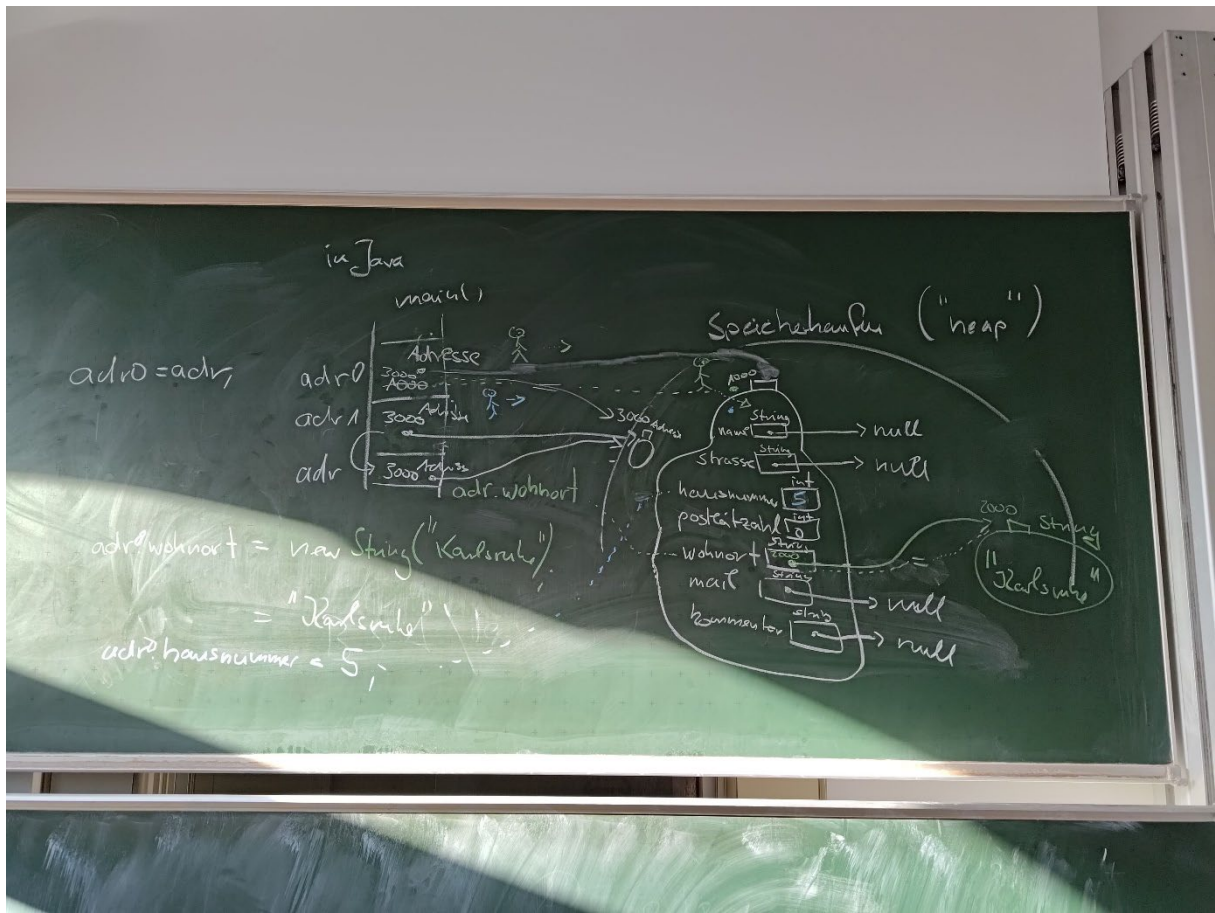 in Java
main()
Speicherhaufen ("heap")
adr0 = adr;
adr0
Adresse
3000
1000
adr1
3000
Adresse
adr
3000
Adresse
adr.wohnort
3000 Adresse
1000
name
String
null
strasse
String
null
hausnummer
int
5
postleitzahl
int
0
wohnort
String
2000
mail
String
null
kommentar
String
null
2000 String
"Karlsruhe"
adr0.wohnort = new String("Karlsruhe")
= "Karlsruhe"
adr0.hausnummer = 5;